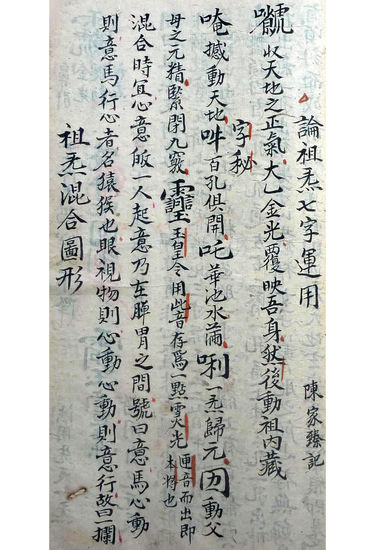 論祖炁七字運用
陳家臻記
收天地之正氣大乙金光覆映吾身然後動祖内藏
字秘
唵撼動天地吽百孔俱開吒華池水滿唎一炁歸元囝動父
母之元精緊閉九竅 玉皇令用此音存爲一點靈光
匣音而出即
本將也
混合時宜心意皈一人起意乃在脾胃之間號曰意馬心動
則意馬行心者名猿猴也眼視物則心動心動則意行故曰一攔
祖炁混合圖形